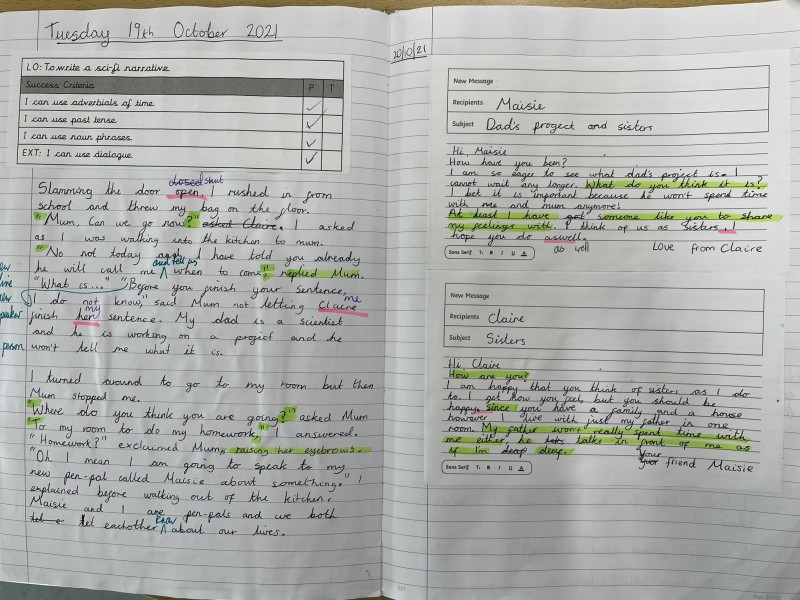 Tuesday 19th October 2021
LO: To write a sci-fi narrative
Success Criteria P T
I can use adverbials of time
I can use past tense
I can use noun phrases
EXT: I can use dialogue
closed shut
Slamming the door open, I rushed in from
school and threw my bag on the floor.
"Mum, Can we go now?" asked Claire. I asked
as I was walking into the kitchen to mum.
"No not today I have told you already
and tell us
he will call me when to come" replied Mum.
"What is..." "Before you finish your sentence,
I do not know," said Mum not letting Claire me
finish her my sentence. My dad is a scientist
and he is working on a project and he
won't tell me what it is.
I turned around to go to my room but then
Mum stopped me.
"Where do you think you are going?" asked Mum
"To my room to do my homework," I answered.
"Homework?" exclaimed Mum, raising her eyebrows.
"Oh I mean I am going to speak to my
new pen-pal called Maisie about something." I
explained before walking out of the kitchen.
Maisie and I are pen-pals and we both
let eachother know about our lives.
speaker
person
20/10/21
New Message
Recipients Maisie
Subject Dad's progect and sisters
Hi, Maisie
How have you been?
I am so eager to see what dad's project is. I
cannot wait any longer. What do you think it is?
I bet it is important because he won't spend time
with me and mum anymore!
At least I have got someone like you to share
my feelings with. I think of us as sisters. I
hope you do aswell.
as well
Love from Claire
Sans Serif T B I U A
New Message
Recipients Claire
Subject Sisters
Hi Claire
How are you?
I am happy that you think of sisters as I do
to. I get how you feel, but you should be
happy since you have a family and a house
however I live with just my father in one
room. My father won't really spend time with
me either, he talks in front of me as
if I'm deaf deaf.
Your friend Maisie
Sans Serif T B I U A